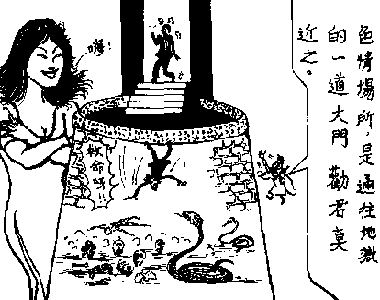 色情場所,是通往地獄
的一道大門 勸君莫
近之。
救命呀!!